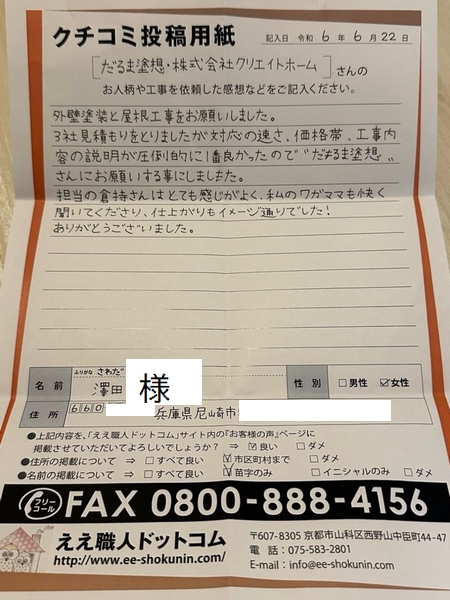 クチコミ投稿用紙
記入日 令和 6 年 6 月 22 日
[だるま塗想・株式会社クリエイトホーム] さんの
お人柄や工事を依頼した感想などをご記入ください。
外壁塗装と屋根工事をお願いしました。
3社見積もりをとりましたが対応の速さ、価格帯、工事内
容の説明が圧倒的に1番良かったので"だるま塗想"
さんにお願いする事にしました。
担当の倉持さんはとても感じがよく、私のワガママも快く
聞いてくださり、仕上がりもイメージ通りでした!
ありがとうございました。
ふりがな さわだ
名前 澤田 様 性別 □男性 ☑女性
住所 660 兵庫県尼崎市
●上記内容を、「ええ職人ドットコム」サイト内の『お客様の声』ページに
掲載させていただいてよろしいでしょうか? ⇒ ☑良い □ダメ
●住所の掲載について ⇒ □すべて良い ☑市区町村まで □ダメ
●名前の掲載について ⇒ □すべて良い ☑苗字のみ □イニシャルのみ □ダメ
フリーコール FAX 0800-888-4156
ええ職人ドットコム
http://www.ee-shokunin.com/
〒607-8305 京都市山科区西野山中臣町44-47
電話:075-583-2801
E-mail:info@ee-shokunin.com